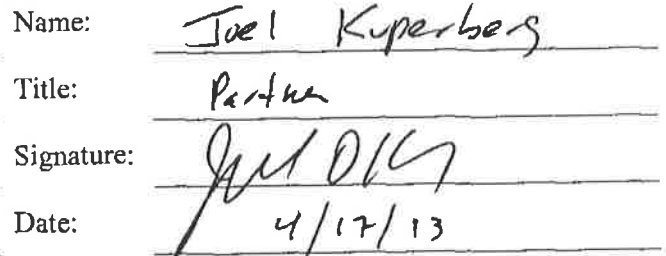 Name: Joel Kuperberg
Title: Partner
Signature:
Date: 4/17/13